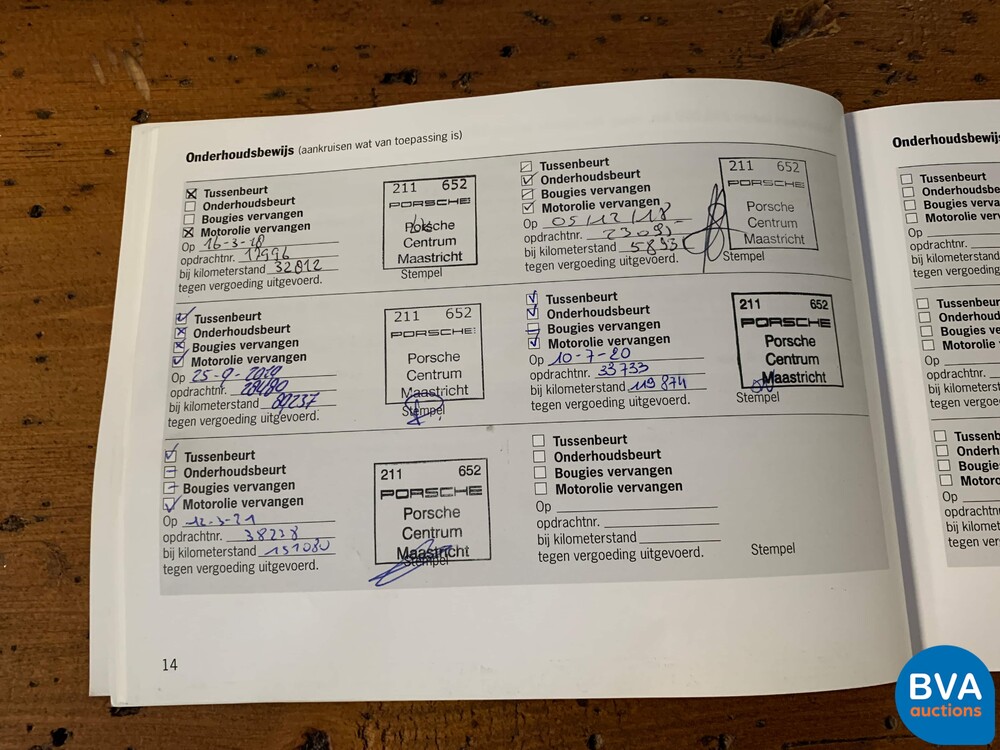 Onderhoudsbewijs (aankruisen wat van toepassing is)
Tussenbeurt
Onderhoudsbeurt
Bougies vervangen
Motorolie vervangen
Op 16-3-18
opdrachtnr. 17996
bij kilometerstand 32812
tegen vergoeding uitgevoerd.
211 652
PORSCHE
Porsche
Centrum
Maastricht
Stempel
Tussenbeurt
Onderhoudsbeurt
Bougies vervangen
Motorolie vervangen
Op 05/12/18
opdrachtnr.
bij kilometerstand
tegen vergoeding uitgevoerd.
211 652
PORSCHE
Porsche
Centrum
Maastricht
Stempel
Tussenbeurt
Onderhoudsbeurt
Bougies vervangen
Motorolie vervangen
Op 25-9-2019
opdrachtnr. 28480
bij kilometerstand 89237
tegen vergoeding uitgevoerd.
211 652
PORSCHE
Porsche
Centrum
Maastricht
Stempel
Tussenbeurt
Onderhoudsbeurt
Bougies vervangen
Motorolie vervangen
Op 10-7-20
opdrachtnr. 33733
bij kilometerstand 119874
tegen vergoeding uitgevoerd.
211 652
PORSCHE
Porsche
Centrum
Maastricht
Stempel
Tussenbeurt
Onderhoudsbeurt
Bougies vervangen
Motorolie vervangen
Op 12-3-21
opdrachtnr. 38238
bij kilometerstand 151080
tegen vergoeding uitgevoerd.
211 652
PORSCHE
Porsche
Centrum
Maastricht
Stempel
Tussenbeurt
Onderhoudsbeurt
Bougies vervangen
Motorolie vervangen
Op
opdrachtnr.
bij kilometerstand
tegen vergoeding uitgevoerd.
Stempel
14
Onderhoudsbewijs
Tussenbeurt
Onderhoudsb
Bougies ver
Motorolie v
Op
opdrachtnr.
bij kilometers
tegen vergoed
Tussenbeur
Onderhoud
Bougies
Motorolie
Op
opdrachtnr.
bij kilomet
tegen verg
Tussenb
Onderh
Bougie
Motoro
Op
opdracht
bij kilome
tegen ver
BVA
auctions